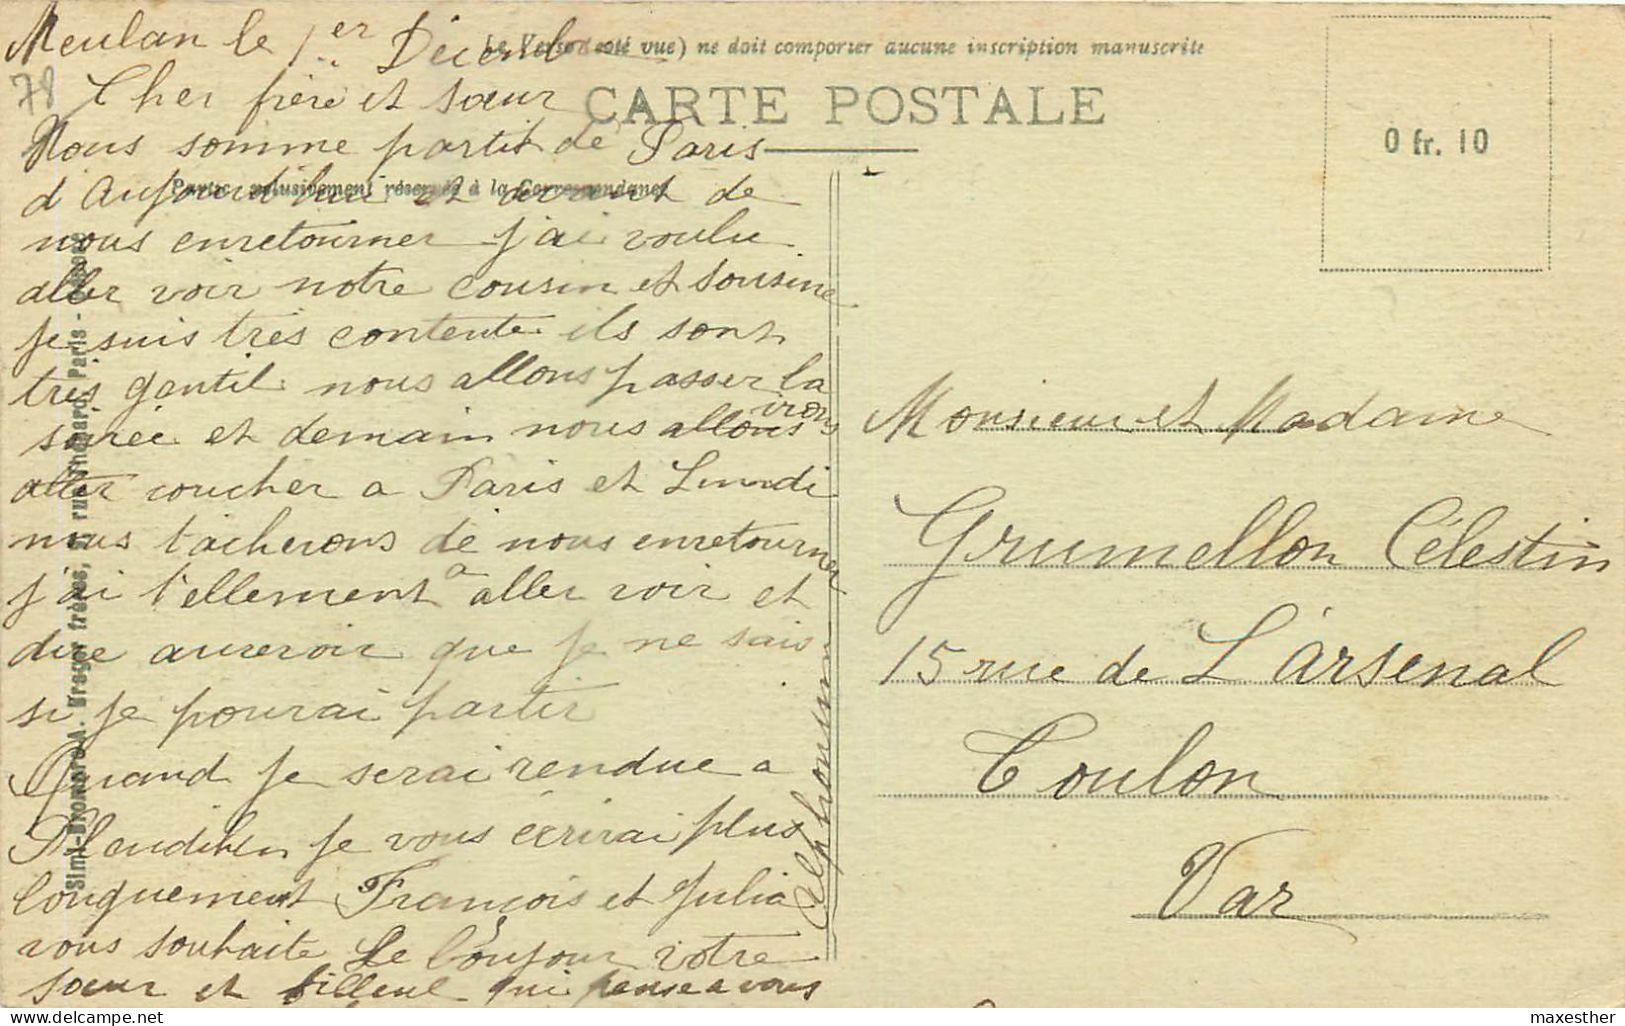 Meulan le 1er Décemb
78
Cher frère et sœur
Nous somme partit de Paris
d'Aujourd'hui et avant de
nous enretourner j'ai voulu
aller voir notre cousin et Cousine
je suis très contente ils sont
très gentil nous allons passer la
soirée et demain nous allons irons
aller coucher a Paris et Lundi
nous tacherons de nous enretourner
j'ai t'ellement a aller voir et
dire aurevoir que je ne sais
si je pourrai partir
Quand je serai rendue a
je vous écrirai plus
longuement François et Julia
vous souhaite Le bonjour votre
sœur et filleul qui pense a vous
Alphonsine
Le Verso (coté vue) ne doit comporter aucune inscription manuscrite
CARTE POSTALE
Partie exclusivement réservée à la Correspondance
0 fr. 10
Monsieur et Madame
Grumellon Célestin
15 rue de L'Arsenal
Toulon
Var
Simi-Bromure A. Breger frères, rue Thénard, Paris -
maxesther